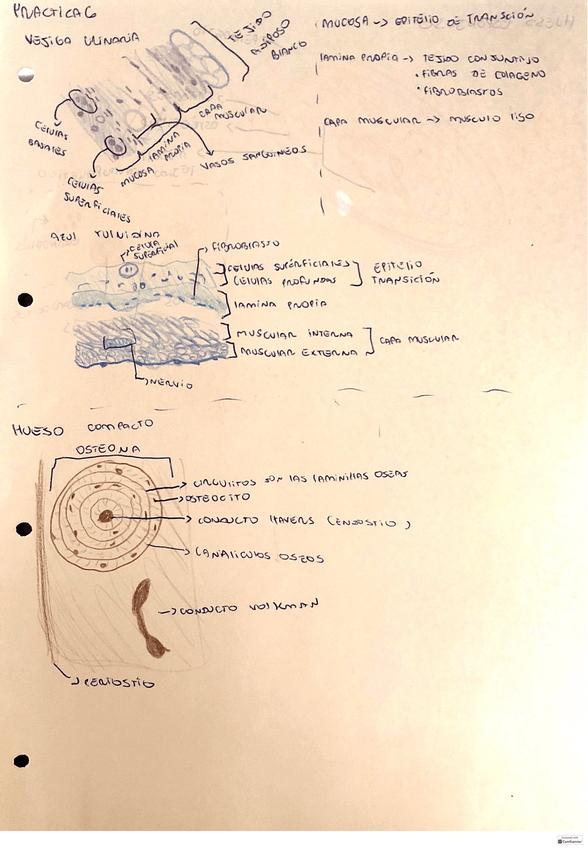 PRACTICA 6
VEJIGA URINARIA
TEJIDO
ADIPOSO
BLANCO
CAPA
MUSCULAR
VASOS SANGUINEOS
LAMINA
PROPIA
MUCOSA
CÉLULAS
BASALES
CÉLULAS
SUPERFICIALES
MUCOSA → EPITELIO DE TRANSCIÓN
LAMINA PROPIA → TEJIDO CONJUNTIVO
• FIBRAS DE COLAGENO
• FIBROBLASTOS
CAPA MUSCULAR → MUSCULO LISO
AZUL TULUIDINA
CELULA
SUPERFICIAL
FIBROBLASTO
CELULAS SUPERFICIALES
CELULAS PROFUNDAS
EPITELIO
TRANSICIÓN
LAMINA PROPIA
MUSCULAR INTERNA
MUSCULAR EXTERNA
CAPA MUSCULAR
NERVIO
HUESO COMPACTO
OSTEONA
CIRCULITOS SON LAS LAMINILLAS OSEAS
OSTEOCITO
CONDUCTO HAVERS (ENDOSTIO)
CANALICULOS OSEOS
CONDUCTO VOLKMAN
PERIOSTIO
CamScanner